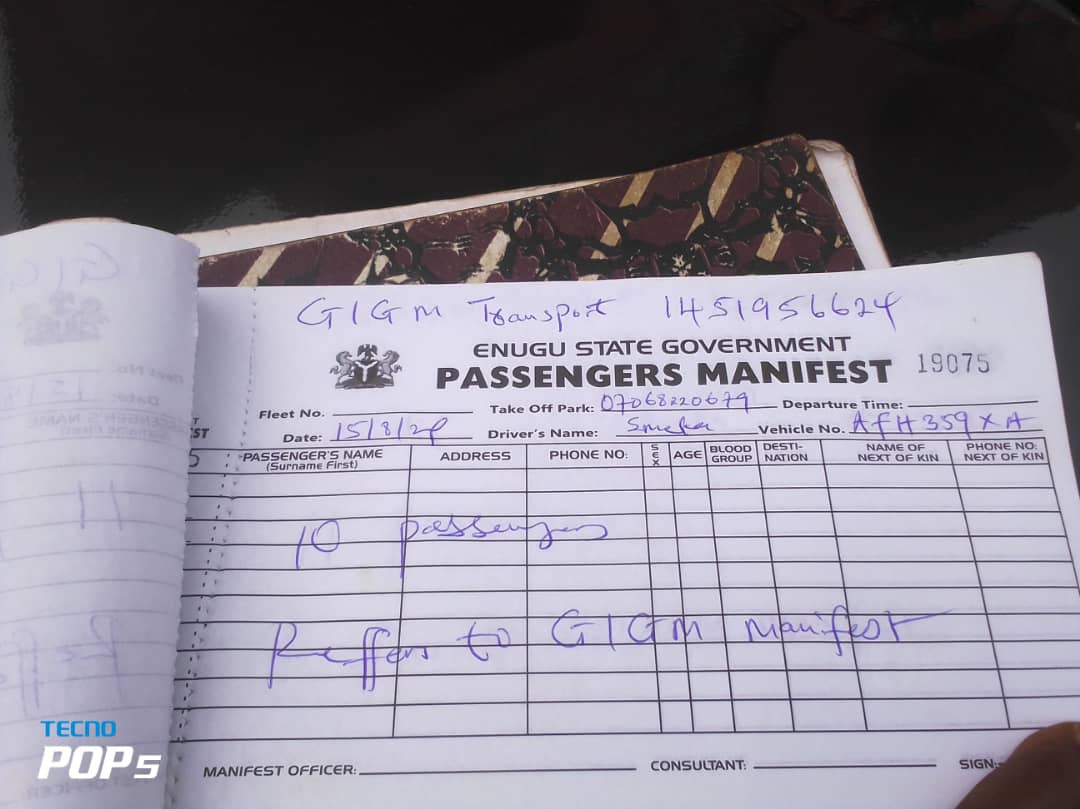 GIGM Transport 1451956624
ENUGU STATE GOVERNMENT
PASSENGERS MANIFEST 19075
Fleet No. Take Off Park: 07068220679 Departure Time:
Date: 15/8/24 Driver's Name: Vehicle No. AFH 359 XA
PASSENGER'S NAME (Surname First) ADDRESS PHONE NO: SEX AGE BLOOD GROUP DESTI-NATION NAME OF NEXT OF KIN PHONE NO: NEXT OF KIN
10 passengers
Reffers to GIGM manifest
MANIFEST OFFICER: CONSULTANT: SIGN:
TECNO
POP 5